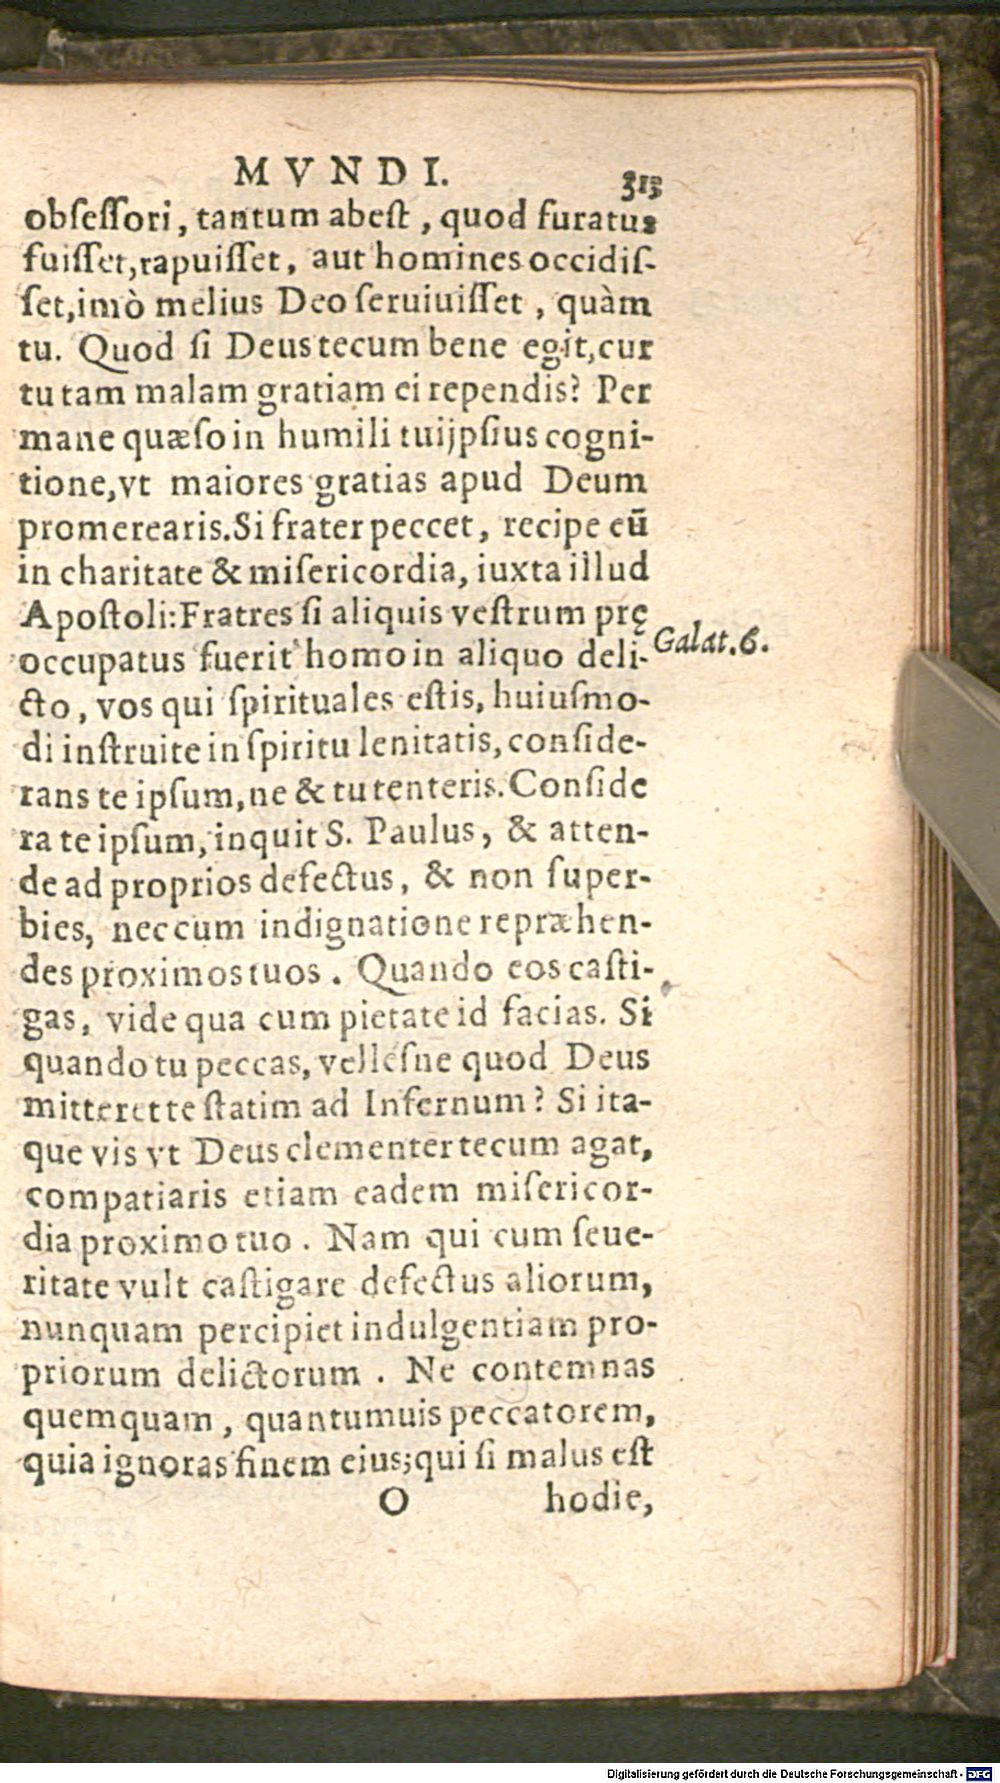 MVNDI.
313
obſeſſori, tantum abeſt, quod furatus
fuiſſet, rapuiſſet, aut homines occidiſ-
ſet, imò melius Deo ſeruiuiſſet, quàm
tu. Quod ſi Deus tecum bene egit, cur
tu tam malam gratiam ei rependis? Per
mane quæſo in humili tuijpſius cogni-
tione, vt maiores gratias apud Deum
promerearis. Si frater peccet, recipe eū
in charitate & miſericordia, iuxta illud
Apoſtoli: Fratres ſi aliquis veſtrum prę
occupatus fuerit homo in aliquo deli-
Galat. 6.
cto, vos qui ſpirituales eſtis, huiuſmo-
di inſtruite in ſpiritu lenitatis, conſide-
rans te ipſum, ne & tu tenteris. Conſide
ra te ipſum, inquit S. Paulus, & atten-
de ad proprios defectus, & non ſuper-
bies, nec cum indignatione repræhen-
des proximos tuos. Quando eos caſti-
gas, vide qua cum pietate id facias. Si
quando tu peccas, velleſne quod Deus
mitteret te ſtatim ad Infernum? Si ita-
que vis vt Deus clementer tecum agat,
compatiaris etiam eadem miſericor-
dia proximo tuo. Nam qui cum ſeue-
ritate vult caſtigare defectus aliorum,
nunquam percipiet indulgentiam pro-
priorum delictorum. Ne contemnas
quemquam, quantumuis peccatorem,
quia ignoras finem eius; qui ſi malus eſt
O hodie,
Digitalisierung gefördert durch die Deutsche Forschungsgemeinschaft - DFG